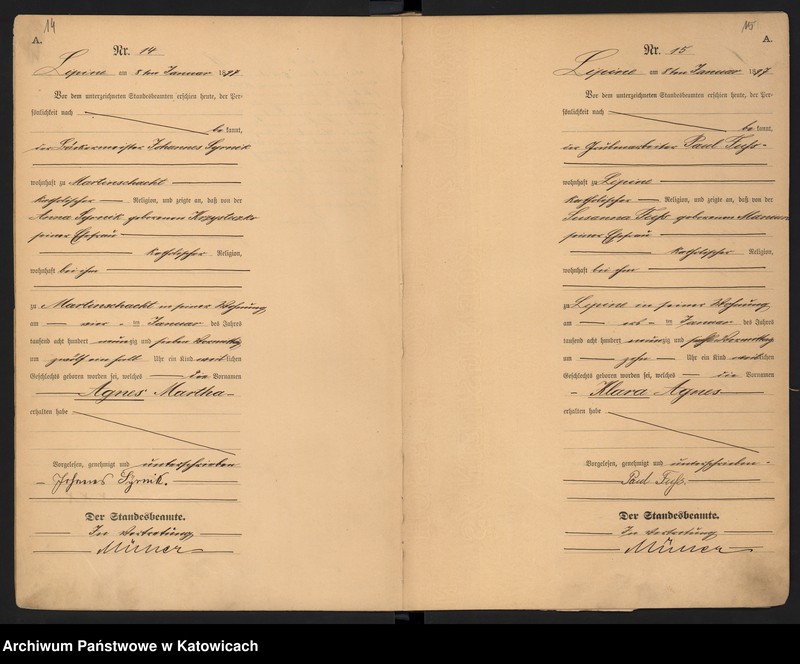 14
A.
Nr. 14
Lipine am 8ten Januar 1897
Vor dem unterzeichneten Standesbeamten erschien heute, der Per-
sönlichkeit nach
be kannt,
der Bäckermeister Johannes Syrnik
wohnhaft zu Martinschacht
katholischer Religion, und zeigte an, daß von der
Anna Syrnik geborenen
seiner Ehefrau
katholischer Religion,
wohnhaft bei ihm
zu Martinschacht in seiner Wohnung
am vier ten Januar des Jahres
tausend acht hundert neunzig und sieben Vormittag
um zwölf ein halb Uhr ein Kind weiblichen
Geschlechts geboren worden sei, welches die Vornamen
Agnes Martha
erhalten habe
Vorgelesen, genehmigt und unterschrieben
Johannes Syrnik.
Der Standesbeamte.
In Vertretung
Müller
15
A.
Nr. 15
Lipine am 8ten Januar 1897
Vor dem unterzeichneten Standesbeamten erschien heute, der Per-
sönlichkeit nach
be kannt,
der Grubenarbeiter Paul
wohnhaft zu Lipine
katholischer Religion, und zeigte an, daß von der
Susanna geborenen
seiner Ehefrau
katholischer Religion,
wohnhaft bei ihm
zu Lipine in seiner Wohnung
am ten Januar des Jahres
tausend acht hundert neunzig und Vormittag
um zehn Uhr ein Kind weiblichen
Geschlechts geboren worden sei, welches die Vornamen
Klara Agnes
erhalten habe
Vorgelesen, genehmigt und unterschrieben
Paul
Der Standesbeamte.
In Vertretung
Müller
Archiwum Państwowe w Katowicach